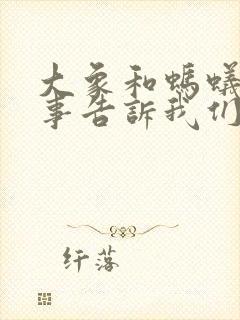 大象和螞蟻
事告訴我们
纤落